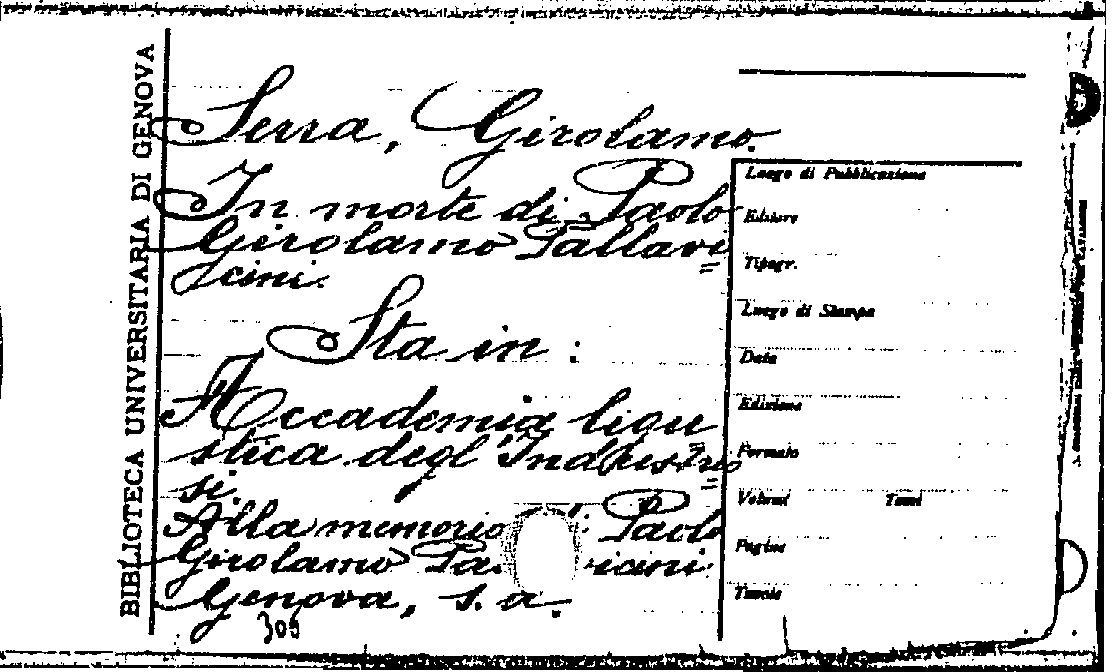 BIBLIOTECA UNIVERSITARIA DI GENOVA
Serra, Girolamo.
In morte di Paolo
Girolamo Pallavi=
cini.
Sta in:
Accademia ligu
stica degl'Industrio=
si.
Alla memoria di Paolo
Girolamo Pa   icini
Genova, s. a.
308
Luogo di Pubblicazione
Editore
Tipogr.
Luogo di Stampa
Data
Edizione
Formato
Volumi Tomi
Pagine
Tavole